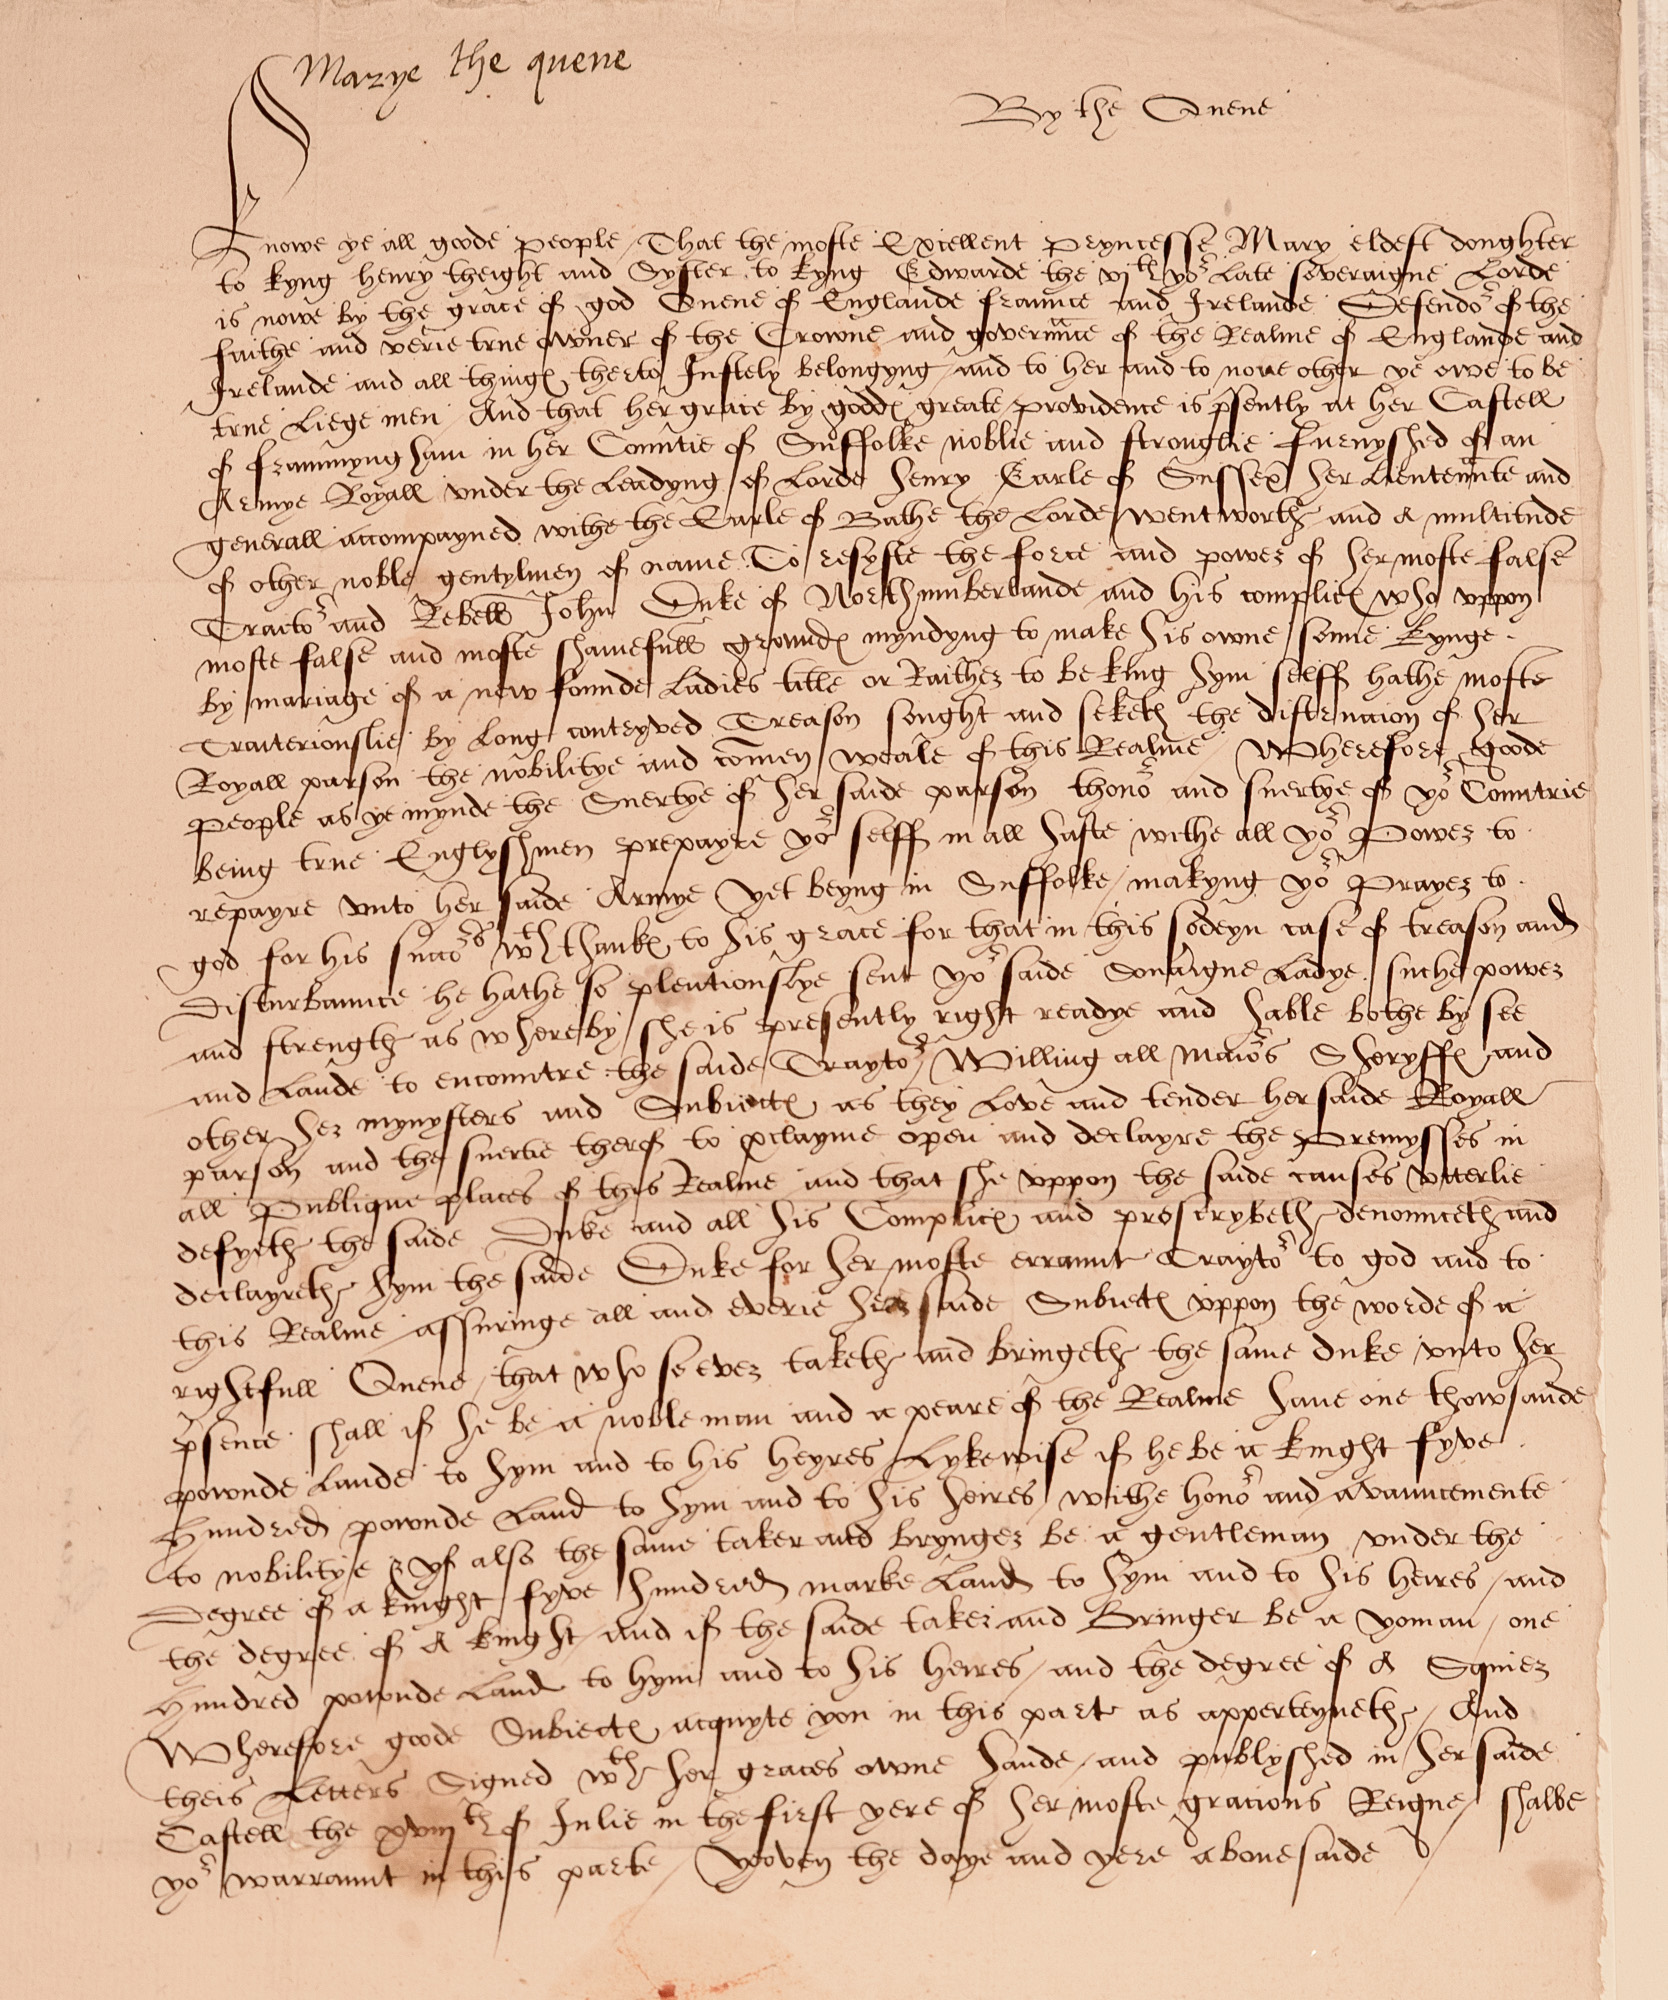 Marye the quene
By the Quene
Knowe ye all goode people / That the moste Excellent Pryncesse Mary eldest doughter
to kyng henry theight and Syster to kyng Edwarde the vjth yor late soveraigne Lorde
is nowe by the grace of god Quene of Englande fraunce and Irelande Defendor of the
faithe and verie true owner of the Crowne and govermãce of the Realme of Englande and
Irelande and all thinges therto Justely belongyng / and to her and to none other ye owe to be
true Liege men / And that her grace by goddes greate providence is psently at her Castell
of frammyngham in her Countie of Suffolke noblie and stronglie furnyshed of an
Armye Royall under the Leadyng of Lorde henry Earle of Sussex her Lieutenñte and
generall accompayned withe the Earle of Bathe the Lorde Wentworth and a multitude
of other noble gentylmen of name To resyste the force and power of her moste false
Traitor and Rebell John Duke of Northumberlande and his complices who uppon
moste false and moste shamefull groundes myndyng to make his owne sonne kynge
by mariage of a new founde Ladies title or Raither to be king hym selff hathe moste
Traiteriouslie by Long contryved Treason sought and seketh the distruccion of her
Royall parson the nobilitye and comen weale of this Realme / Wherefore goode
People as ye mynde the Suertye of her saide parson thonor and suertye of yor Countrie
being true Englyshmen prepayre yor selff in all haste withe all yor Power to
repayre unto her saide Armye yet beyng in Suffolke / makyng yor Prayer to
god for his succors wth thankes to his grace for that in this sodeyn case of treason and
disturbaunce he hathe so plentiouslye sent yor saide Souaigne Ladye suche power
and strength as whereby she is presently right readye and hable bothe by see
and Lande to encountre the saide Traytor / Willing all maiors Sheryffes and
other her mynysters and Subiectes as they Love and tender her saide Royall
parson and the suertie therof to pclayme open and declayre the Premysses in
all Publique places of this Realme and that she uppon the saide causes utterlie
defyeth the saide Duke and all his Complices and proscrybeth denounceth and
declayreth hym the saide Duke for her moste erraunt Traytor to god and to
this Realme / assuringe all and everie her saide Subiectes uppon the worde of a
rightfull Quene / that who so ever taketh and bringeth the same duke unto her
psence shall if he be a noble man and a peare of the Realme have one thowsande
pownde Lande to hym and to his heyres Lykewise if he be a knight fyve
Hundred pownde Land to hym and to his heires / withe honor and avauncemente
to nobilitye & yf also the same taker and brynger be a gentleman under the
Degree of a knight fyve hundred marke Land to hym and to his heires / and
the degree of a knight / and if the saide taker and Bringer be a yoman / one
Hundred pownde Land to hym and to his heires / and the degree of a Squier
Wherefore goode Subiectes acquyte you in this parte as apperteyneth / And
theis Letters Signed wth her graces owne hande / and publyshed in her saide
Castell the xviijth of Julie in the first yere of her moste gracious Reigne / shalbe
yor warraunt in this parte / Yoven the daye and yere above saide